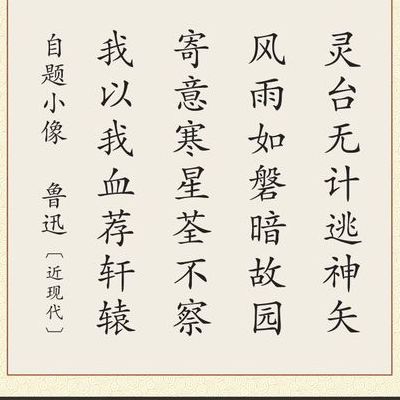 灵台无计逃神矢
风雨如磐暗故园
寄意寒星荃不察
我以我血荐轩辕
自题小像 鲁迅〔近现代〕